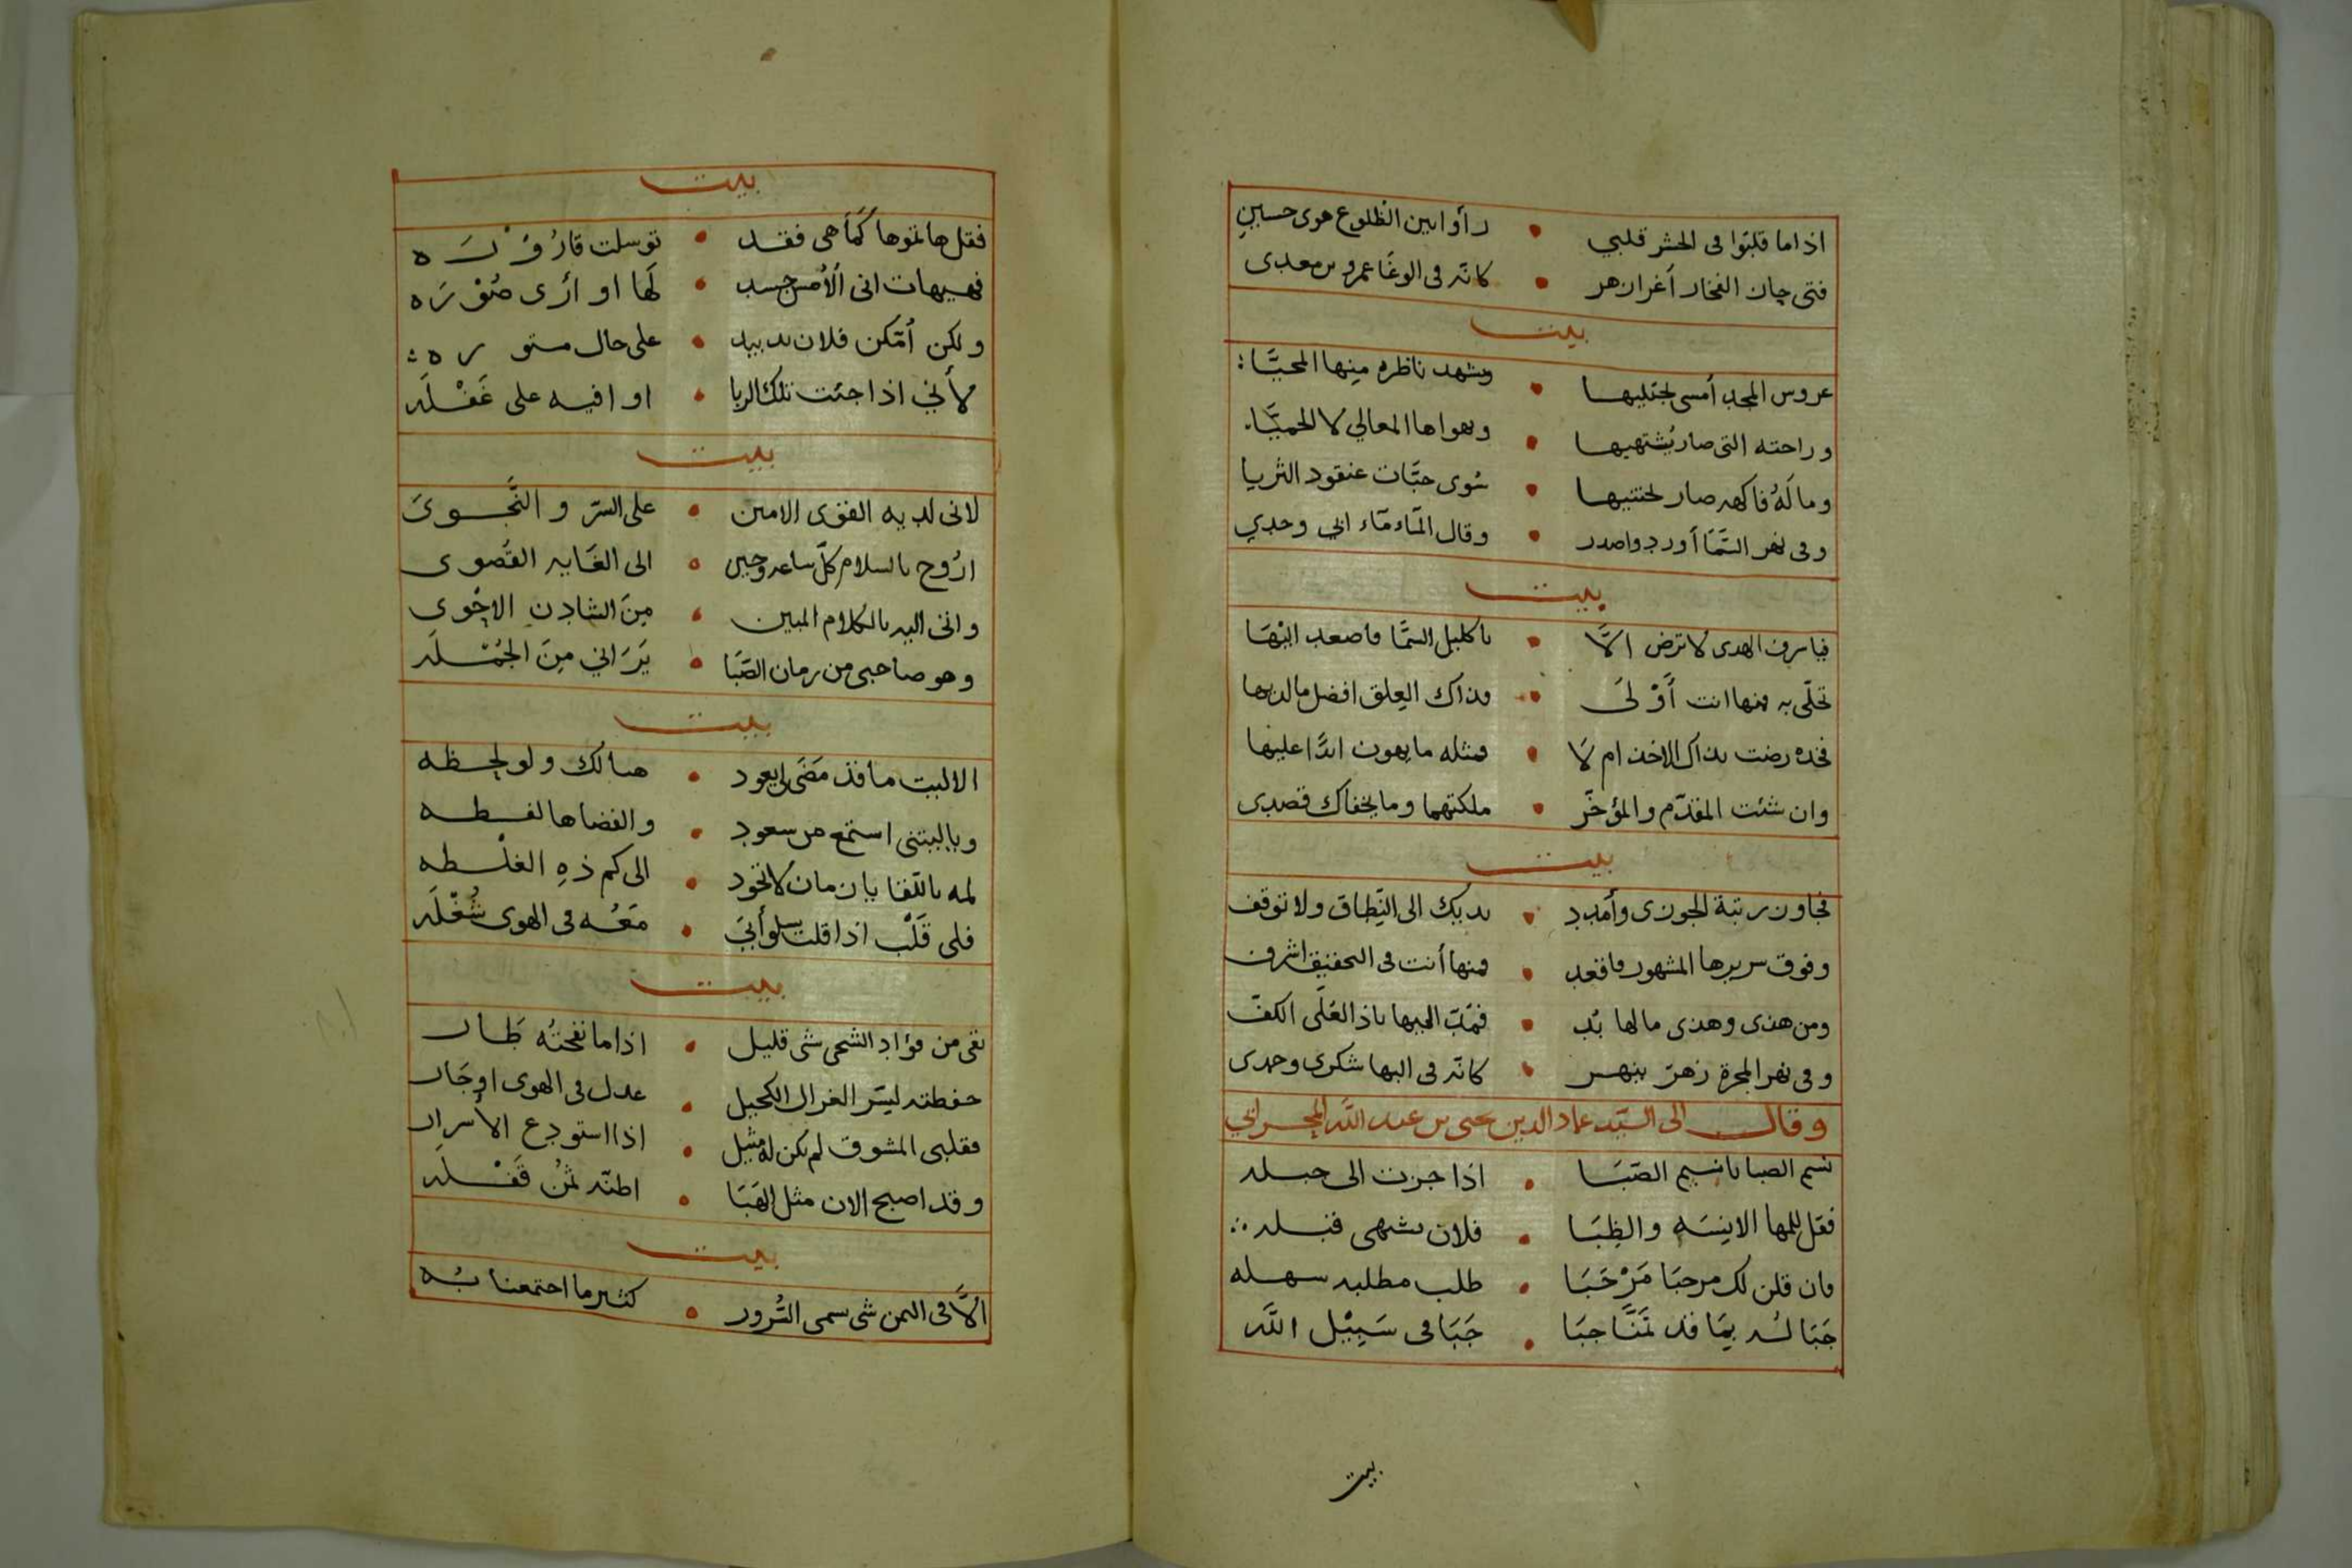 اذا ما قلبوا فى الحشر قلبي • رأوا بين الظلوع هوى حسينِ
فتى جان الفخار أغر ازهر • كانه فى الوغا عمرو بن معدى
بيت
عروس المجد أمسى يجتليها • ويشهد ناظره مِنها المحيَّا
وراحته التى صار يُشتهيها • ويهواها المعالي لا الحميَّا
وما لَهُ فاكهه صار يجتنيها • سُوى حبَّات عنقود الثريا
وفى نهر السَّمَا أورد واصدر • وقال المآء مآء ابي وجدي
بيت
فيا سرف الهدى لا ترض الاَّ • باكليل السمَّا فاصعد اليْهَا
تحلّى به فنهاانت أَوْلَى • وذاك العِلق افضل ما لديها
فخذه رضت بذاك الاخذ ام لَا • فمثله ما يهون ابدًا عليها
وان شئت المقدّم والمؤخّر • ملكتهما وما يخفاك قصدى
بيت
فجاوز رتبة الجوزى وأمدد • يديك الى النِّطاق ولا توقف
وفوق سريرها المشهور فاقعد • فمنها أنت فى التحقيق اشرف
ومن هذى وهذى ما لها بُد • فمُدّ اليها ياذا العُلَى الكفّ
وفى نهر المجرة زهرّ ينهر • كانّه فى البها شكرى وحمدى
وقال الى السيّد عماد الدين يحيى بن عبد اللّه
نسيم الصبا يا نسيم الصّبَا • اذا جزت الى جبله
فقل للمها الانِيسَه والظِبَا • فلان يشهى قبله
فان قلن لك مرحبَا مَرْحَبَا • طلب مطلبه سهله
حَبَا لُه بِمَا قد تمَنَّا حبَا • حَبَا فى سَبِيْل اللّه
بيت
بيت
فقل هاتموها كَمَا هى فقد • توسلت
فهيهات انى أَلْمس جسد • لَها او أرى صُوْرَه
ولكن أمّكن فلان يد بيد • على حال مستوره
لأني اذا جئت تلك الربا • اوافيه على غَفْلَه
بيت
لانى لديه القوى الامين • على السّر والنَّجوىَ
ارُوح بالسلام كلّ ساعه وحين • الى الغَايه القُصوى
وانى اليه بالكلام المبين • مِنَ الشادن الاحوى
وهو صاحبى من زمان الصِّبَا • يَرَاني مِنَ الجُمْلَه
بيت
الا ليت ما قد مَضَى لي يعود • هنالك ولو لحظه
وياليتنى استمع من سعود • والفضاها لفظه
لمه باللّقا يا زمان لا تجود • الى كم ذهِ الغلْطه
فلى قَلْب اذا قلت يسلو أَبَىَ • مَعُه فى الهوى شُغْلَه
بيت
بقى من فؤاد الشجى شى قليل • اذا ما نفختُه طَار
حفظته ليسّر الغزال الكحيل • عدل فى الهوى اوجَار
فقلبى المشوق لم يكن له مثيل • اذا استودع الأسرار
وقد اصبح الان مثل الهَبَا • اظنّه ثمُن قَفْلَه
بيت
ألاَّ فى اليمن شى سمى السُّرور • كثير ما اجتمعنا بُه